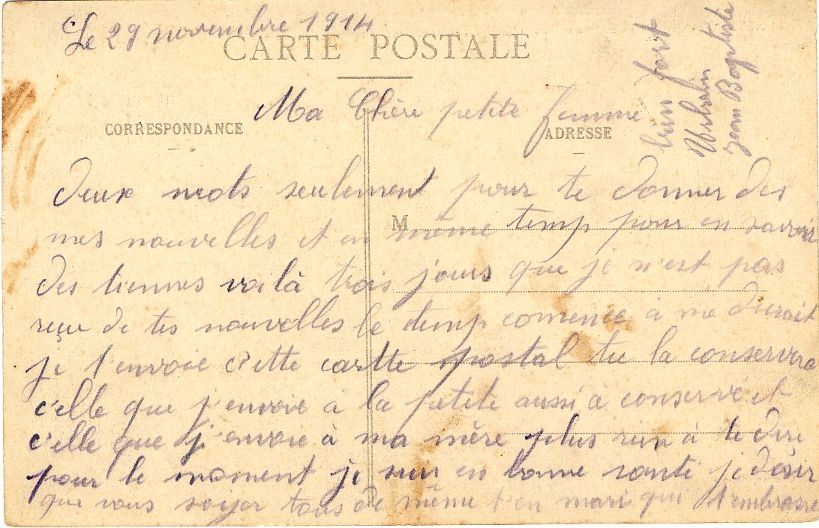 Le 29 novembre 1914
CARTE POSTALE
CORRESPONDANCE
ADRESSE
M
Ma Chère petite femme
deux mots seulement pour te donner des
mes nouvelles et en même temp pour en savoir
des tiennes voilà trois jours que je n'est pas
reçu de tes nouvelles le temp comence à me
je t'envoie cette cartte postal tu la conservera
c'elle que j'envoie a la petite aussi à conservé et
c'elle que j'envoie à ma mère plus rien à te dire
pour le moment je suis en bonne santé je désir
que vous soyer tous de même ton mari qui t'embrasse
bien fort
Urbain
Jean Baptiste